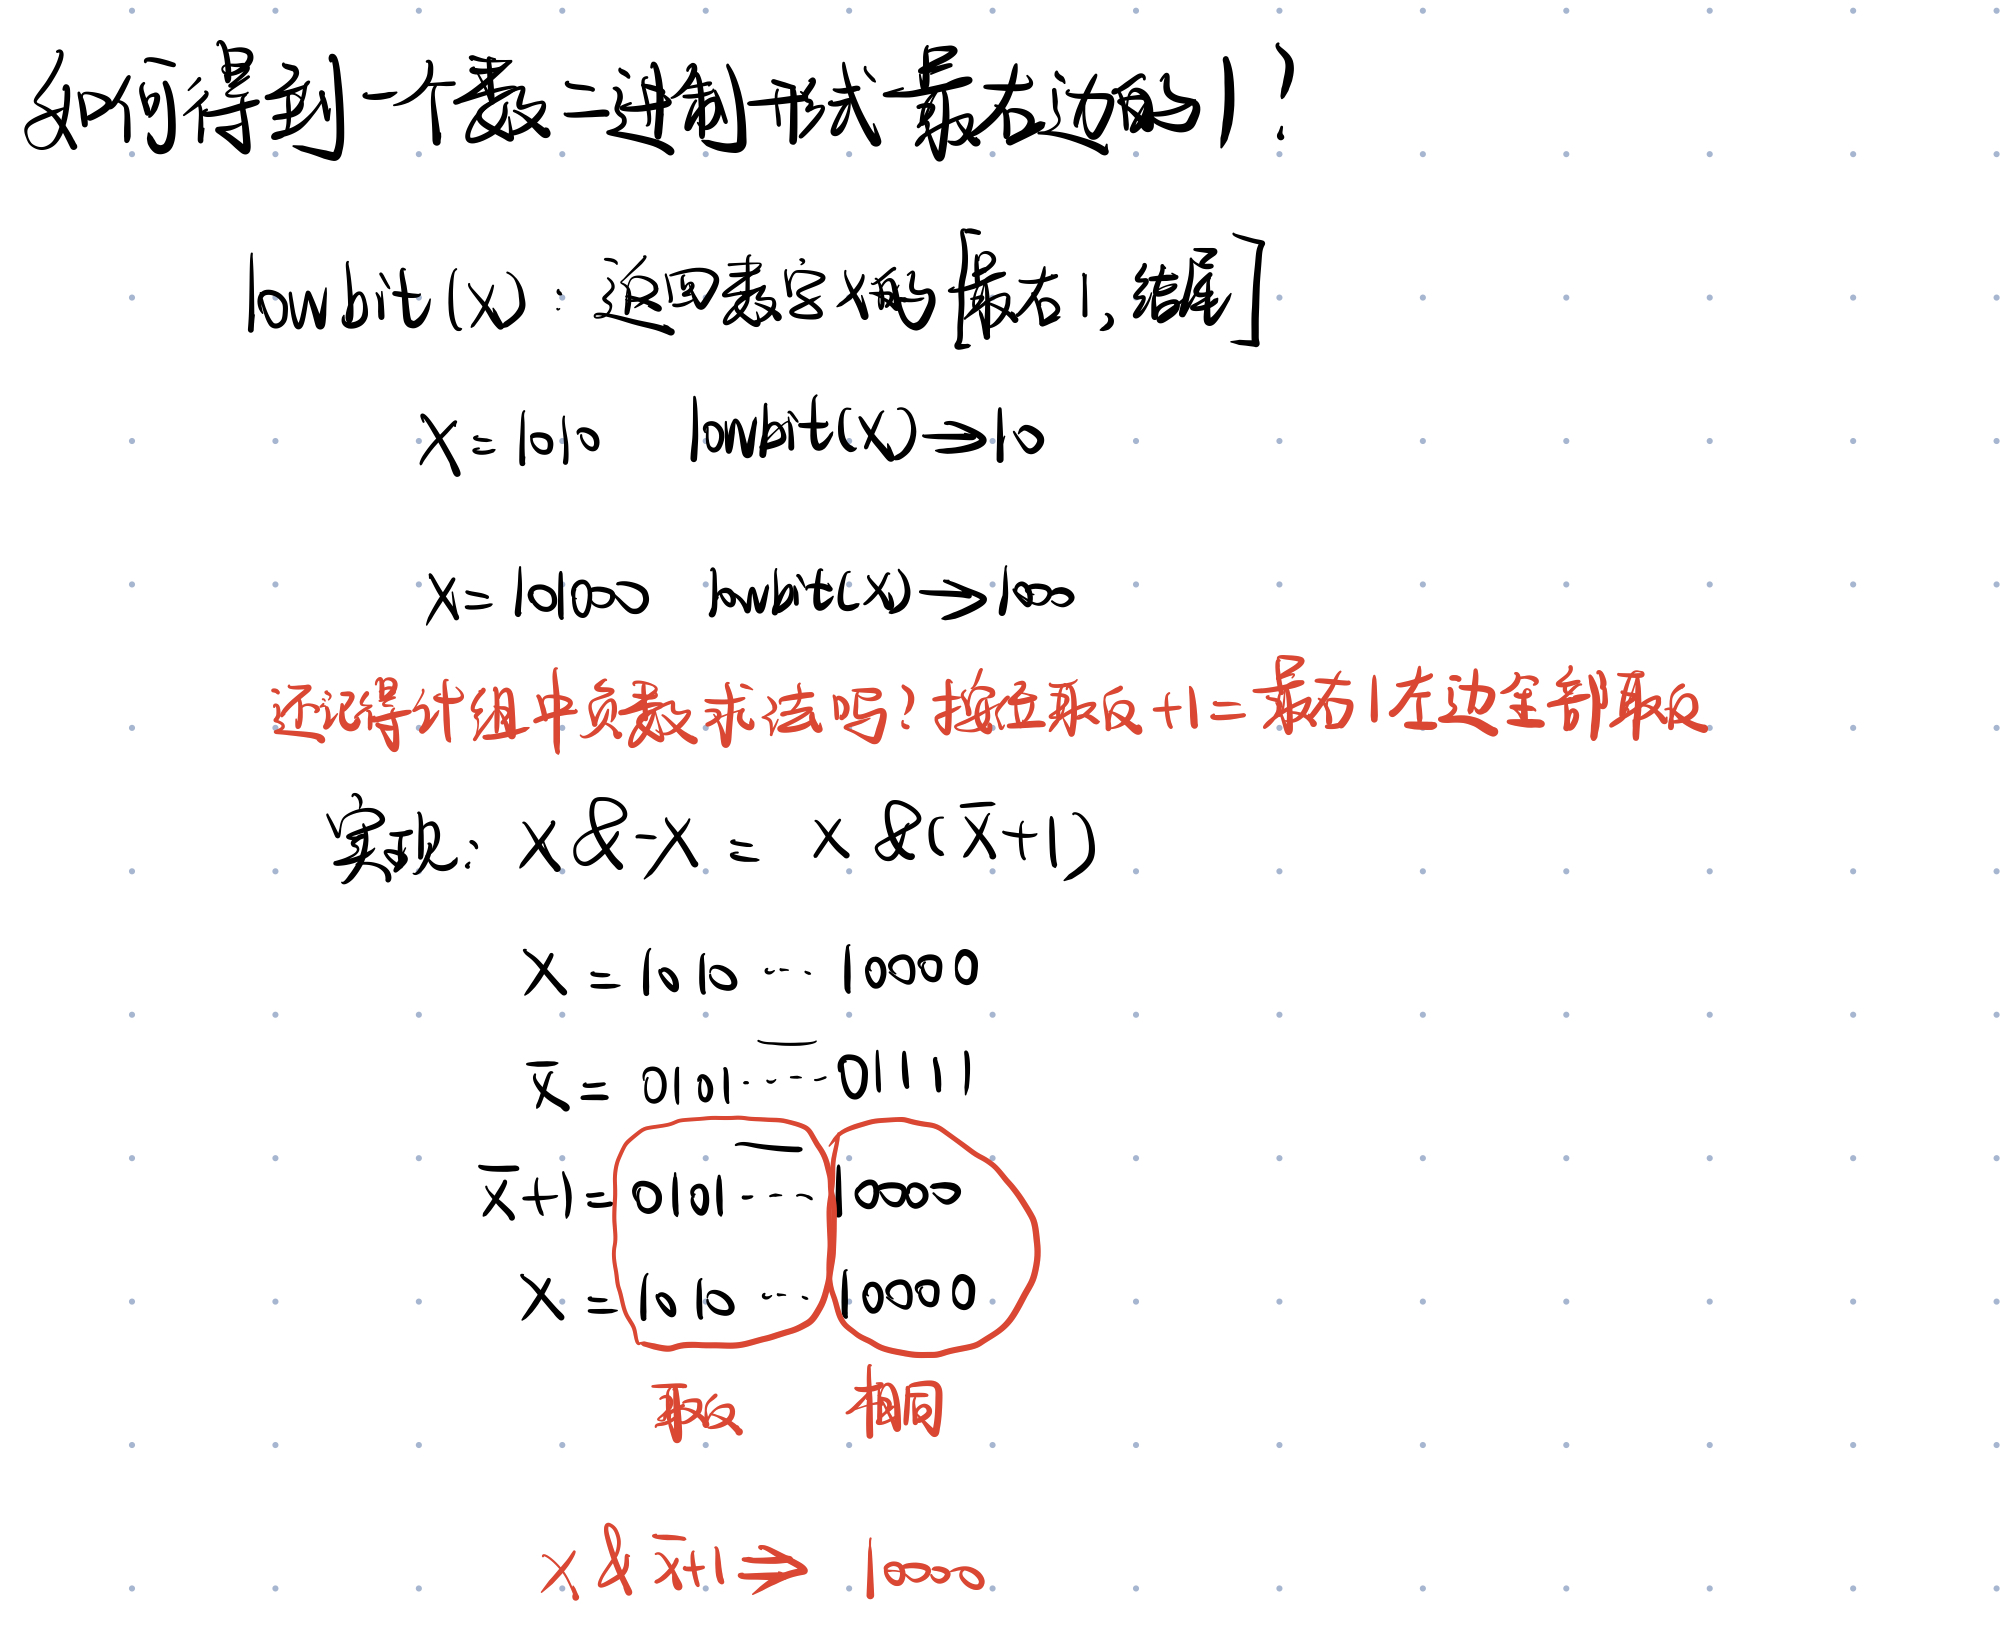 如何得到一个数二进制形式最右边的1?
lowbit(x): 返回数字x的[最右1,结尾]
x=1010 lowbit(x)→10
x=101000 lowbit(x)→1000
还记得计组中负数求法吗?按位取反+1=最右1左边全部取反
实现: x&-x = x&(x̅+1)
x = 1010 ... 10000
x̅ = 0101 ... 01111
x̅+1 = 0101 ... 10000
x = 1010 ... 10000
取反 相同
x & x̅+1 ⇒ 10000